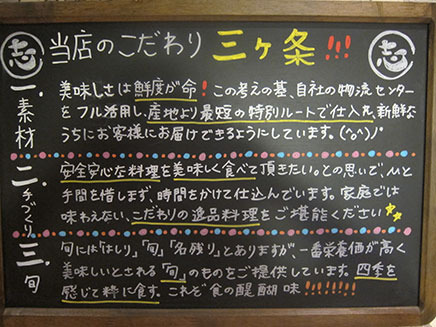 志 当店のこだわり 三ヶ条!!! 志
一.素材
美味しさは鮮度が命!この考えの基、自社の物流センター
をフル活用し、産地より最短の特別ルートで仕入れ新鮮な
うちにお客様にお届けできるようにしています。(^o^)丿
二.手づくり
安全安心な料理を美味しく食べて頂きたい。との思いで、ひと
手間を惜しまず、時間をかけて仕込んでいます。家庭では
味わえない、こだわりの逸品料理をご堪能ください☆☆
三.旬
旬には「はしり」「旬」「名残り」とありますが、一番栄養価が高く
美味しいとされる「旬」のものをご提供しています。四季を
感じて粋に食す。これぞ食の醍醐味!!!!!!!!